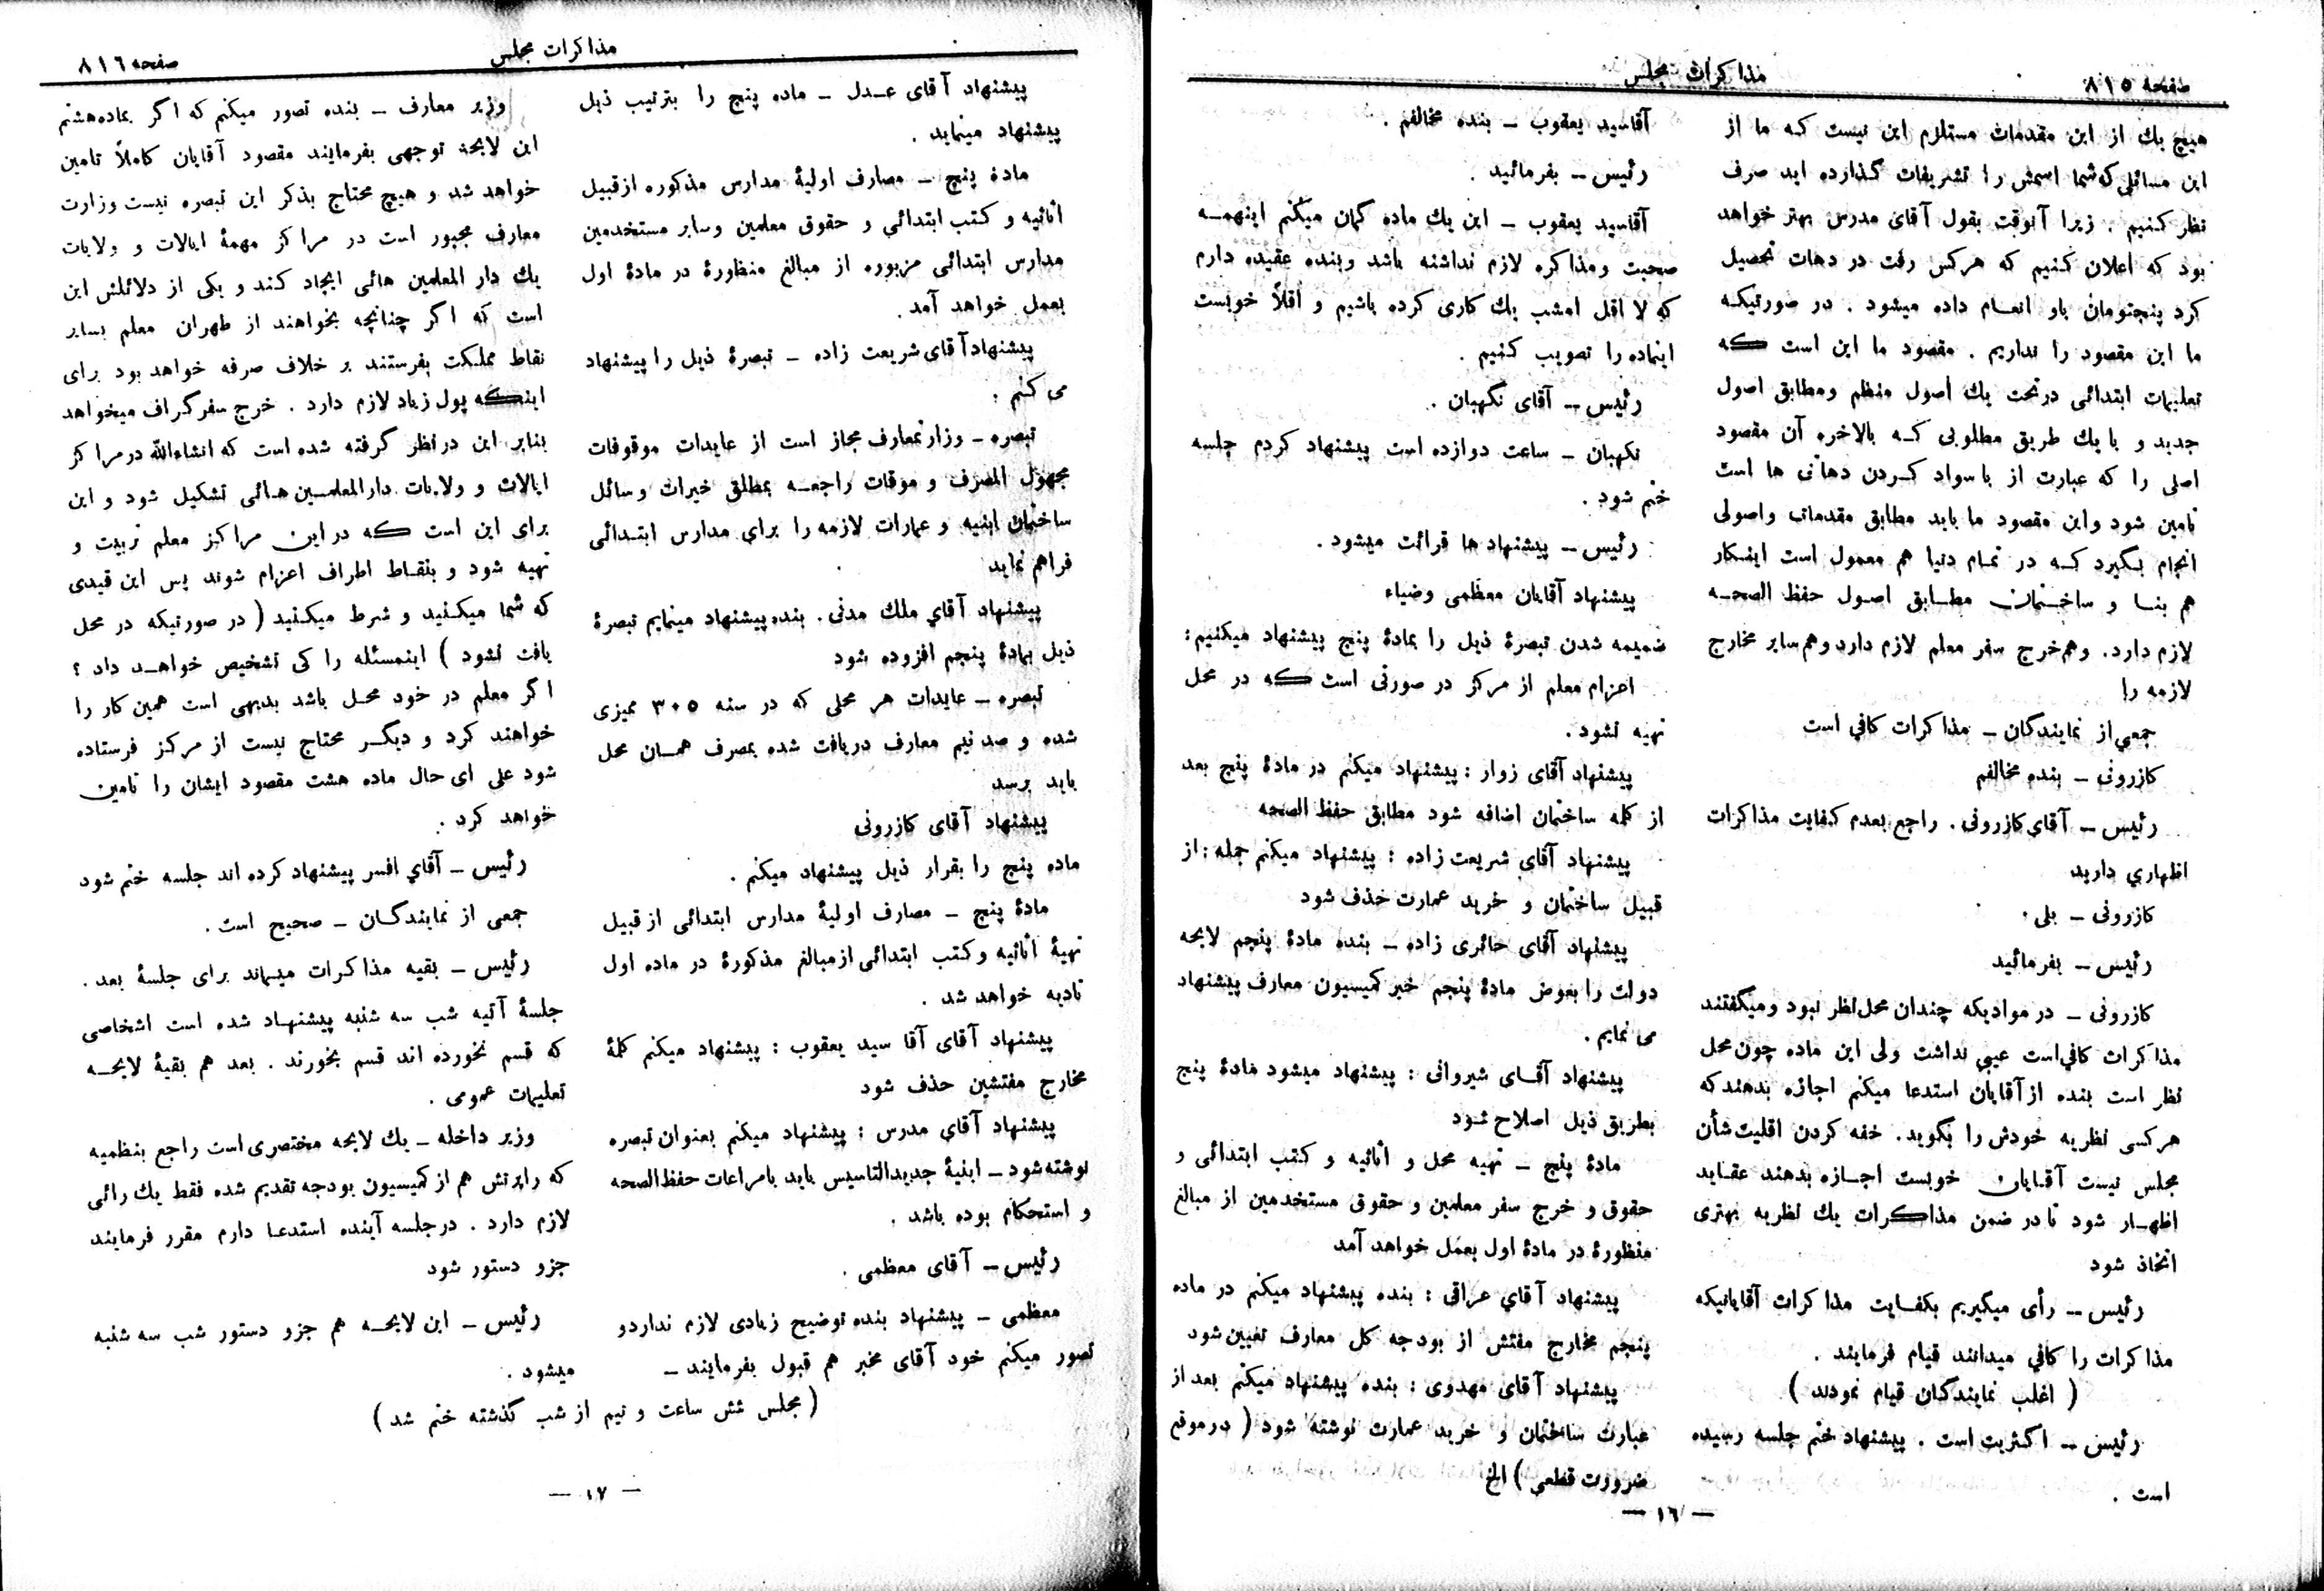 صفحه ٨١٥
مذاکرات مجلس
هیچ یك از این مقدمات مستلزم این نیست که ما از
این مسائلی که شما اسمش را تشریفات گذارده اید صرف
نظر کنیم . زیرا آنوقت بقول آقای مدرس بهتر خواهد
بود که اعلان کنیم که هرکس رفت در دهات تحصیل
کرد پنجتومان باو انعام داده میشود . در صورتیکه
ما این مقصود را نداریم . مقصود ما این است که
تعلیمات ابتدائی در تحت یك اصول منظم ومطابق اصول
جدید و با یك طریق مطلوبی که بالاخره آن مقصود
اصلی را که عبارت از با سواد کردن دهاتی ها است
تامین شود واین مقصود ما باید مطابق مقدمات واصولی
انجام بگیرد که در تمام دنیا هم معمول است اینکار
هم بنا و ساختمان مطابق اصول حفظ الصحه
لازم دارد. وهم خرج سفر معلم لازم دارد وهم سایر مخارج
لازمه را
جمعي از نمایندگان ــ مذاکرات کافي است
کازرونی ــ بنده مخالفم
رئیس ــ آقاي کازرونی. راجع بعدم کفایت مذاکرات
اظهاري دارید
کازرونی ــ بلی .
رئیس ــ بفرمائید
کازرونی ــ در موادیکه چندان محل نظر نبود ومیگفتند
مذاکرات کافي است عیبی نداشت ولی این ماده چون محل
نظر است بنده از آقایان استدعا میکنم اجازه بدهند که
هرکسی نظریه خودش را بگوید. خفه کردن اقلیت شأن
مجلس نیست آقایان خوبست اجازه بدهند عقاید
اظهار شود تا در ضمن مذاکرات یك نظریه بهتری
اتخاذ شود
رئیس ــ رأی میگیریم بکفایت مذاکرات آقایانیکه
مذاکرات را کافي میدانند قیام فرمایند .
( اغلب نمایندکان قیام نمودند )
رئیس ــ اکثریت است . پیشنهاد ختم جلسه رسیده
است .
آقاسید یعقوب ــ بنده مخالفم .
رئیس ــ بفرمائید .
آقاسید یعقوب ــ این یك ماده گمان میکنم اینهمه
صحبت ومذاکره لازم نداشته باشد وبنده عقیده دارم
که لا اقل امشب یك کاری کرده باشیم و اقلاً خوبست
اینماده را تصویب کنیم .
رئیس ــ آقای نگهبان .
نگهبان ــ ساعت دوازده است پیشنهاد کردم جلسه
ختم شود .
رئیس ــ پیشنهاد ها قرائت میشود .
پیشنهاد آقایان معظمی وضیاء
ضمیمه شدن تبصرۀ ذیل را بمادۀ پنج پیشنهاد میکنیم :
اعزام معلم از مرکز در صورتی است که در محل
تهیه نشود .
پیشنهاد آقای زوار : پیشنهاد میکنم در مادۀ پنج بعد
از کلمه ساختمان اضافه شود مطابق حفظ الصحه
پیشنهاد آقای شریعت زاده : پیشنهاد میکنم جمله : از
قبیل ساختمان و خرید عمارت حذف شود
پیشنهاد آقای حائری زاده ــ بنده مادۀ پنجم لایحه
دولت را بعوض مادۀ پنجم خبر کمیسیون معارف پیشنهاد
می نمایم .
پیشنهاد آقای شیروانی : پیشنهاد میشود مادۀ پنج
بطریق ذیل اصلاح شود
مادۀ پنج ــ تهیه محل و اثاثیه و کتب ابتدائی و
حقوق و خرج سفر معلمین و حقوق مستخدمین از مبالغ
منظورۀ در مادۀ اول بعمل خواهد آمد
پیشنهاد آقاي عراقی : بنده پیشنهاد میکنم در ماده
پنجم مخارج مفتش از بودجه کل معارف تعیین شود
پیشنهاد آقای مهدوی : بنده پیشنهاد میکنم بعد از
عبارت ساختمان و خرید عمارت نوشته شود ( در موقع
ضرورت قطعي ) الخ
— ١٦ —
مذاکرات مجلس
صفحه ٨١٦
پیشنهاد آقای عدل ــ ماده پنج را بترتیب ذیل
پیشنهاد مینماید .
مادۀ پنج ــ مصارف اولیۀ مدارس مذکوره از قبیل
اثاثیه و کتب ابتدائي و حقوق معلمین وسایر مستخدمین
مدارس ابتدائی مزبوره از مبالغ منظورۀ در مادۀ اول
بعمل خواهد آمد.
پیشنهاد آقای شریعت زاده ــ تبصرۀ ذیل را پیشنهاد
می کنم :
تبصره ــ وزارتمعارف مجاز است از عایدات موقوفات
مجهول المصرف و موقات راجعه بمطلق خیرات وسائل
ساختمان ابنیه و عمارات لازمه را براي مدارس ابتدائی
فراهم نماید
پیشنهاد آقاي ملك مدنی. بنده پیشنهاد مینمایم تبصرۀ
ذیل بمادۀ پنجم افزوده شود
تبصره ــ عایدات هر محلی که در سنه ٣٠٥ ممیزی
شده و صد نیم معارف دریافت شده بمصرف همان محل
باید برسد
پیشنهاد آقای کازرونی
ماده پنج را بقرار ذیل پیشنهاد میکنم .
مادۀ پنج ــ مصارف اولیۀ مدارس ابتدائی از قبیل
تهیۀ اثاثیه و کتب ابتدائی از مبالغ مذکورۀ در ماده اول
تادیه خواهد شد .
پیشنهاد آقای آقا سید یعقوب : پیشنهاد میکنم کلمۀ
مخارج مفتشین حذف شود
پیشنهاد آقاي مدرس : پیشنهاد میکنم بعنوان تبصره
نوشته شود ــ ابنیۀ جدیدالتاسیس باید بامراعات حفظ الصحه
و استحکام بوده باشد .
رئیس ــ آقای معظمی .
معظمی ــ پیشنهاد بنده توضیح زیادی لازم نداردو
تصور میکنم خود آقای مخبر هم قبول بفرمایند ــ
وزیر معارف ــ بنده تصور میکنم که اگر بماده هشتم
این لایحه توجهی بفرمایند مقصود آقایان کاملاً تامین
خواهد شد و هیچ محتاج بذکر این تبصره نیست وزارت
معارف مجبور است در مراکز مهمۀ ایالات و ولایات
یك دار المعلمین هائی ایجاد کند و یکی از دلائلش این
است که اگر چنانچه بخواهند از طهران معلم بسایر
نقاط مملکت بفرستند بر خلاف صرفه خواهد بود برای
اینکه پول زیاد لازم دارد . خرج سفر گزاف میخواهد
بنابر این در نظر گرفته شده است که انشاءالله در مراکز
ایالات و ولایات دارالمعلمین هائی تشکیل شود و این
برای این است که در این مراکز معلم تربیت و
تهیه شود و بنقاط اطراف اعزام شوند پس این قیدی
که شما میکنید و شرط میکنید ( در صورتیکه در محل
یافت نشود ) اینمسئله را کی تشخیص خواهد داد ؟
اگر معلم در خود محل باشد بدیهی است همین کار را
خواهند کرد و دیگر محتاج نیست از مرکز فرستاده
شود علی ای حال ماده هشت مقصود ایشان را تامین
خواهد کرد .
رئیس ــ آقاي افسر پیشنهاد کرده اند جلسه ختم شود
جمعی از نمایندگان ــ صحیح است .
رئیس ــ بقیه مذاکرات میماند برای جلسۀ بعد .
جلسۀ آتیه شب سه شنبه پیشنهاد شده است اشخاصی
که قسم نخورده اند قسم بخورند . بعد هم بقیۀ لایحه
تعلیمات عمومی .
وزیر داخله ــ یك لایحه مختصری است راجع بنظمیه
که راپرتش هم از کمیسیون بودجه تقدیم شده فقط یك رائی
لازم دارد . در جلسه آینده استدعا دارم مقرر فرمایند
جزو دستور شود
رئیس ــ این لایحه هم جزو دستور شب سه شنبه
میشود .
( مجلس شش ساعت و نیم از شب گذشته ختم شد )
— ١٧ —